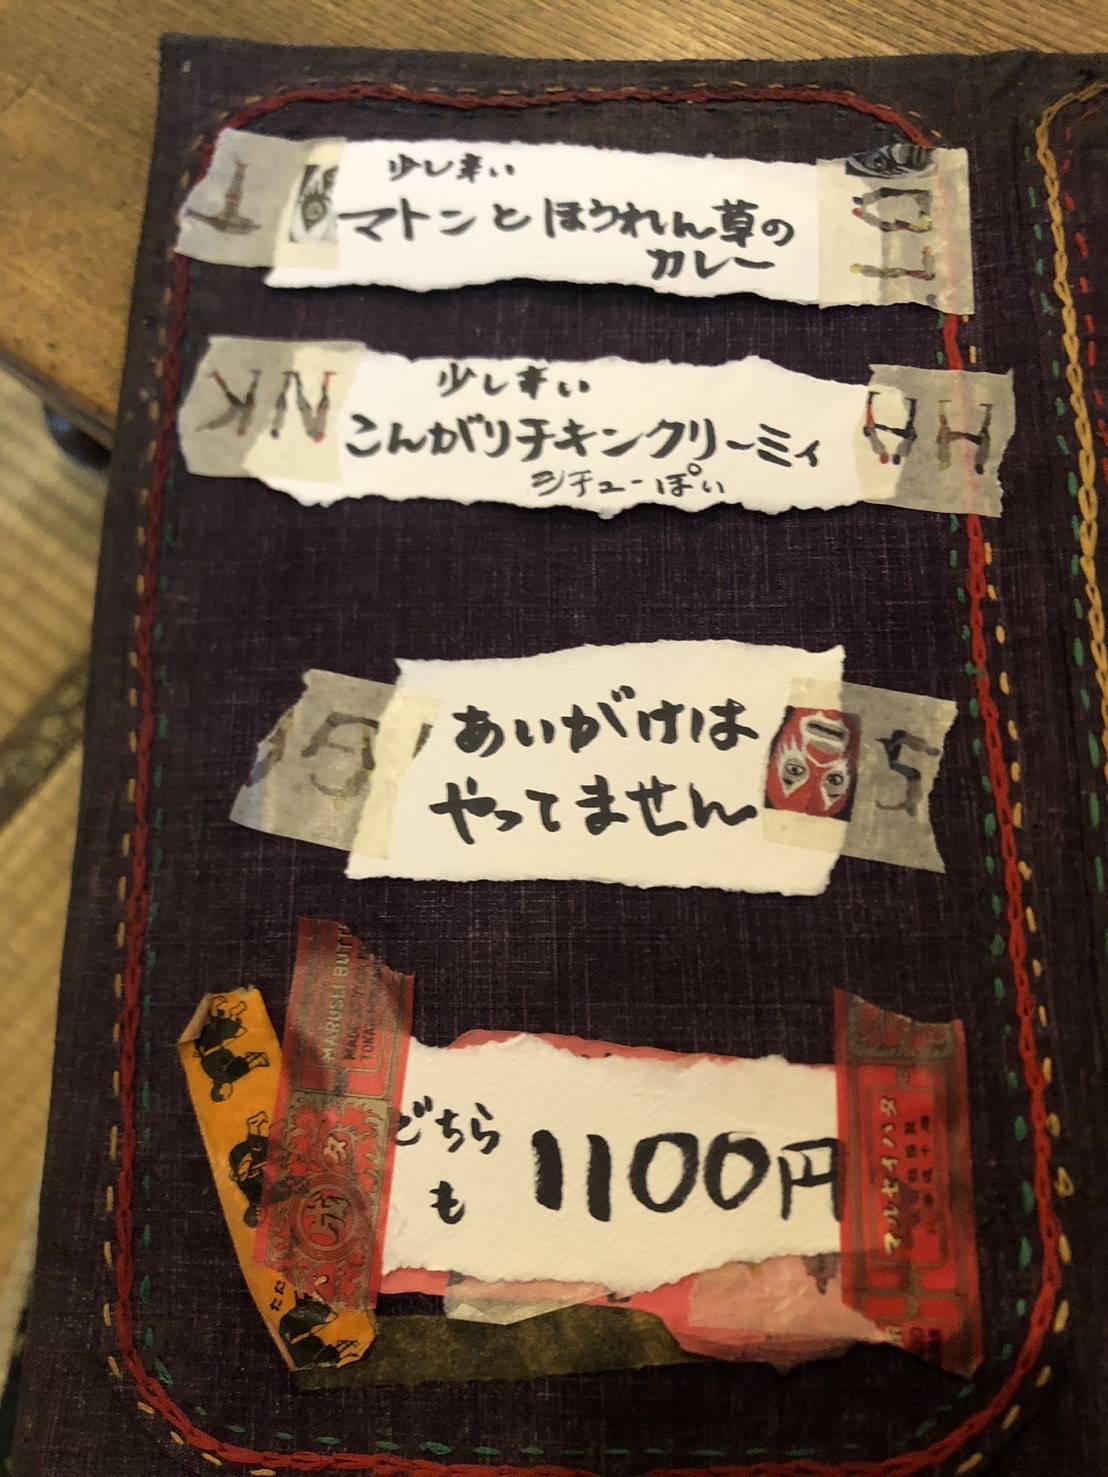 少し辛い
マトンとほうれん草の
カレー
少し辛い
こんがりチキンクリーミィ
シチューぽい
あいがけは
やってません
どちら
も
1100円
MARUSEI BUTT
マルセイバタ